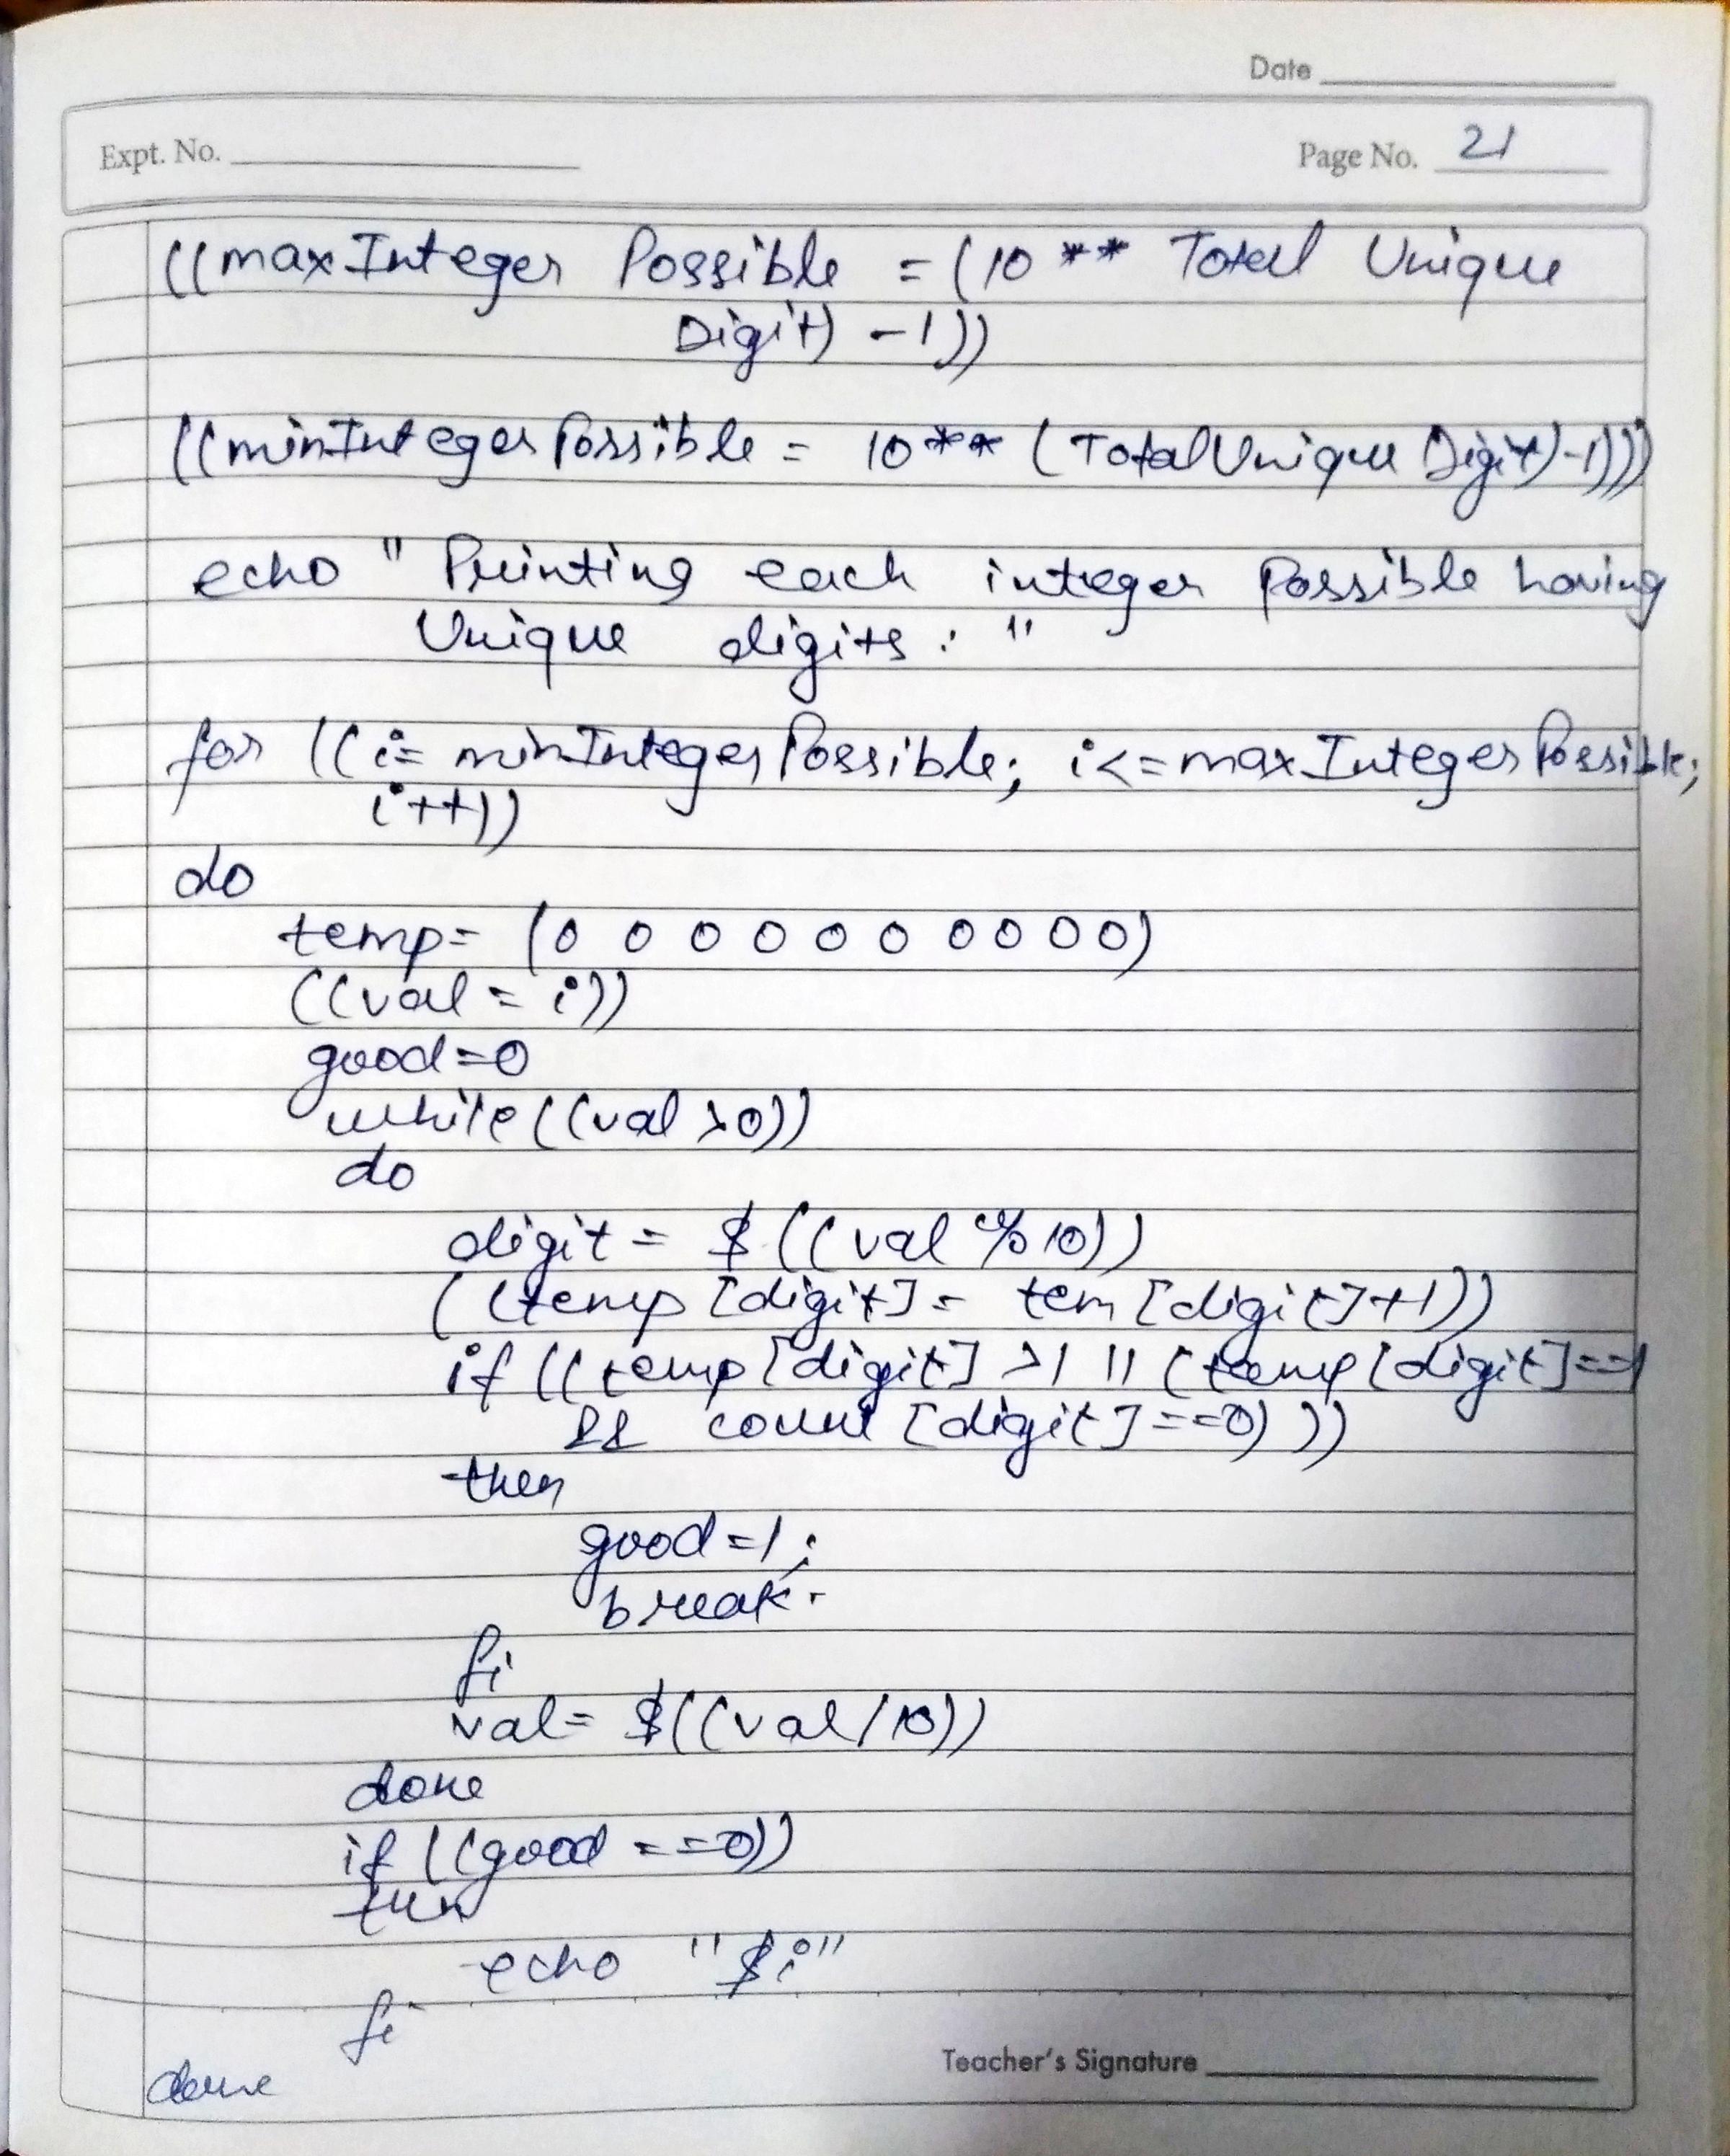 Date
Expt. No.
Page No. 21
((maxInteger Possible = (10 ** Total Unique
Digit) -1))
((minIntegerPossible = 10** (TotalUnique Digit)-1)))
echo " Printing each integer Possible having
Unique digits : "
for ((i= minIntegerPossible; i<=maxIntegerPossible;
i++))
do
temp= (0 0 0 0 0 0 0 0 0 0)
((val = i))
good=0
while((val >0))
do
digit = $ ((val %10))
((temp [digit] = tem [digit]+1))
if ((temp[digit] >1 || (temp[digit]==1
&& count [digit]==0) ))
then
good=1;
break.
fi
val= $((val/10))
done
if ((good ==0))
then
echo "$i"
fi
done
Teacher's Signature